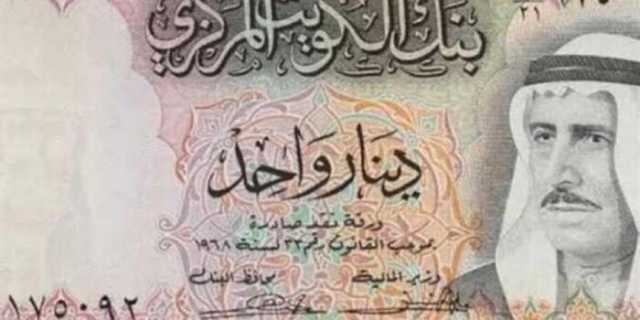 بنك الكويت المركزي
دينار واحد
ورقة نقد صادرة
بموجب القانون رقم ٣٢ لسنة ١٩٦٨
وزير المالية
محافظ البنك
١٧٥٠٩٢